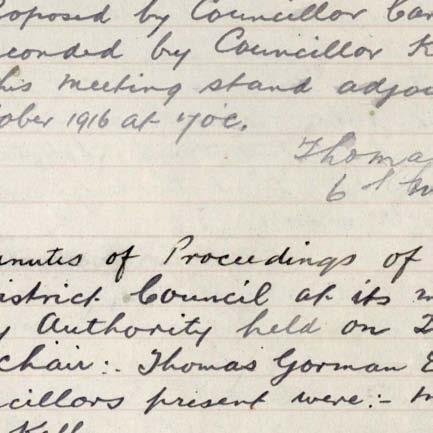 roposed by Councillor Car
econded by Councillor K
his meeting stand adjou
ober 1916 at 7 o'c.
Thoma
6th
inutes of Proceedings of
istrict Council at its m
y Authority held on
chair:- Thomas Gorman E
ncillors present were:- m
Kell